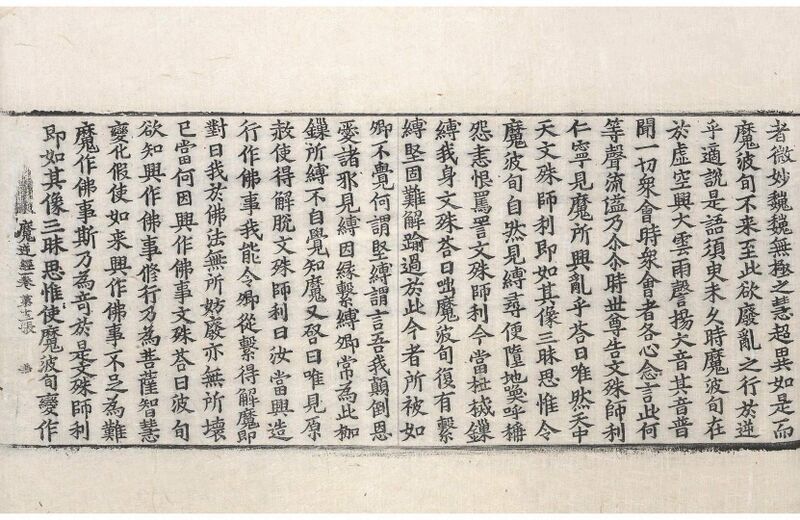 者微妙巍巍無極之慧超異如是而
魔波旬不來至此欲廢亂之行於逆
乎適說是語須臾未久時魔波旬在
於虛空興大雲雨聲揚大音其音普
聞一切衆會時衆會者各心念言此何
等聲流溢乃尒尒時世尊告文殊師利
仁寧見魔所興亂乎荅曰唯然天中
天文殊師利即如其像三昧思惟令
魔波旬自然見縛尋便墮地呼稱
怨恚恨罵詈文殊師利今當杻械鏁
縛我身文殊荅曰咄魔波旬復有繫
縛堅固難解踰過於此今者所被如
卿不覺何謂堅縛謂言吾我顛倒恩
愛諸邪見縛因緣繫縛卿常為此枷
鏁所縛不自覺知魔又啓曰唯見原
赦使得解脫文殊師利曰汝當興造
行作佛事我能令卿從繫得解魔即
對曰我於佛法無所妨廢亦無所壞
已當何因興作佛事文殊荅曰波旬
欲知興作佛事修行乃為菩薩智慧
變化假使如来興作佛事不足為難
魔作佛事斯乃為奇於是文殊師利
即如其像三昧思惟使魔波旬變作
魔逆經一卷 第十三張